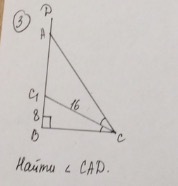 ③
D
A
C₁
16
8
B
C
Найти ∠ CAD.